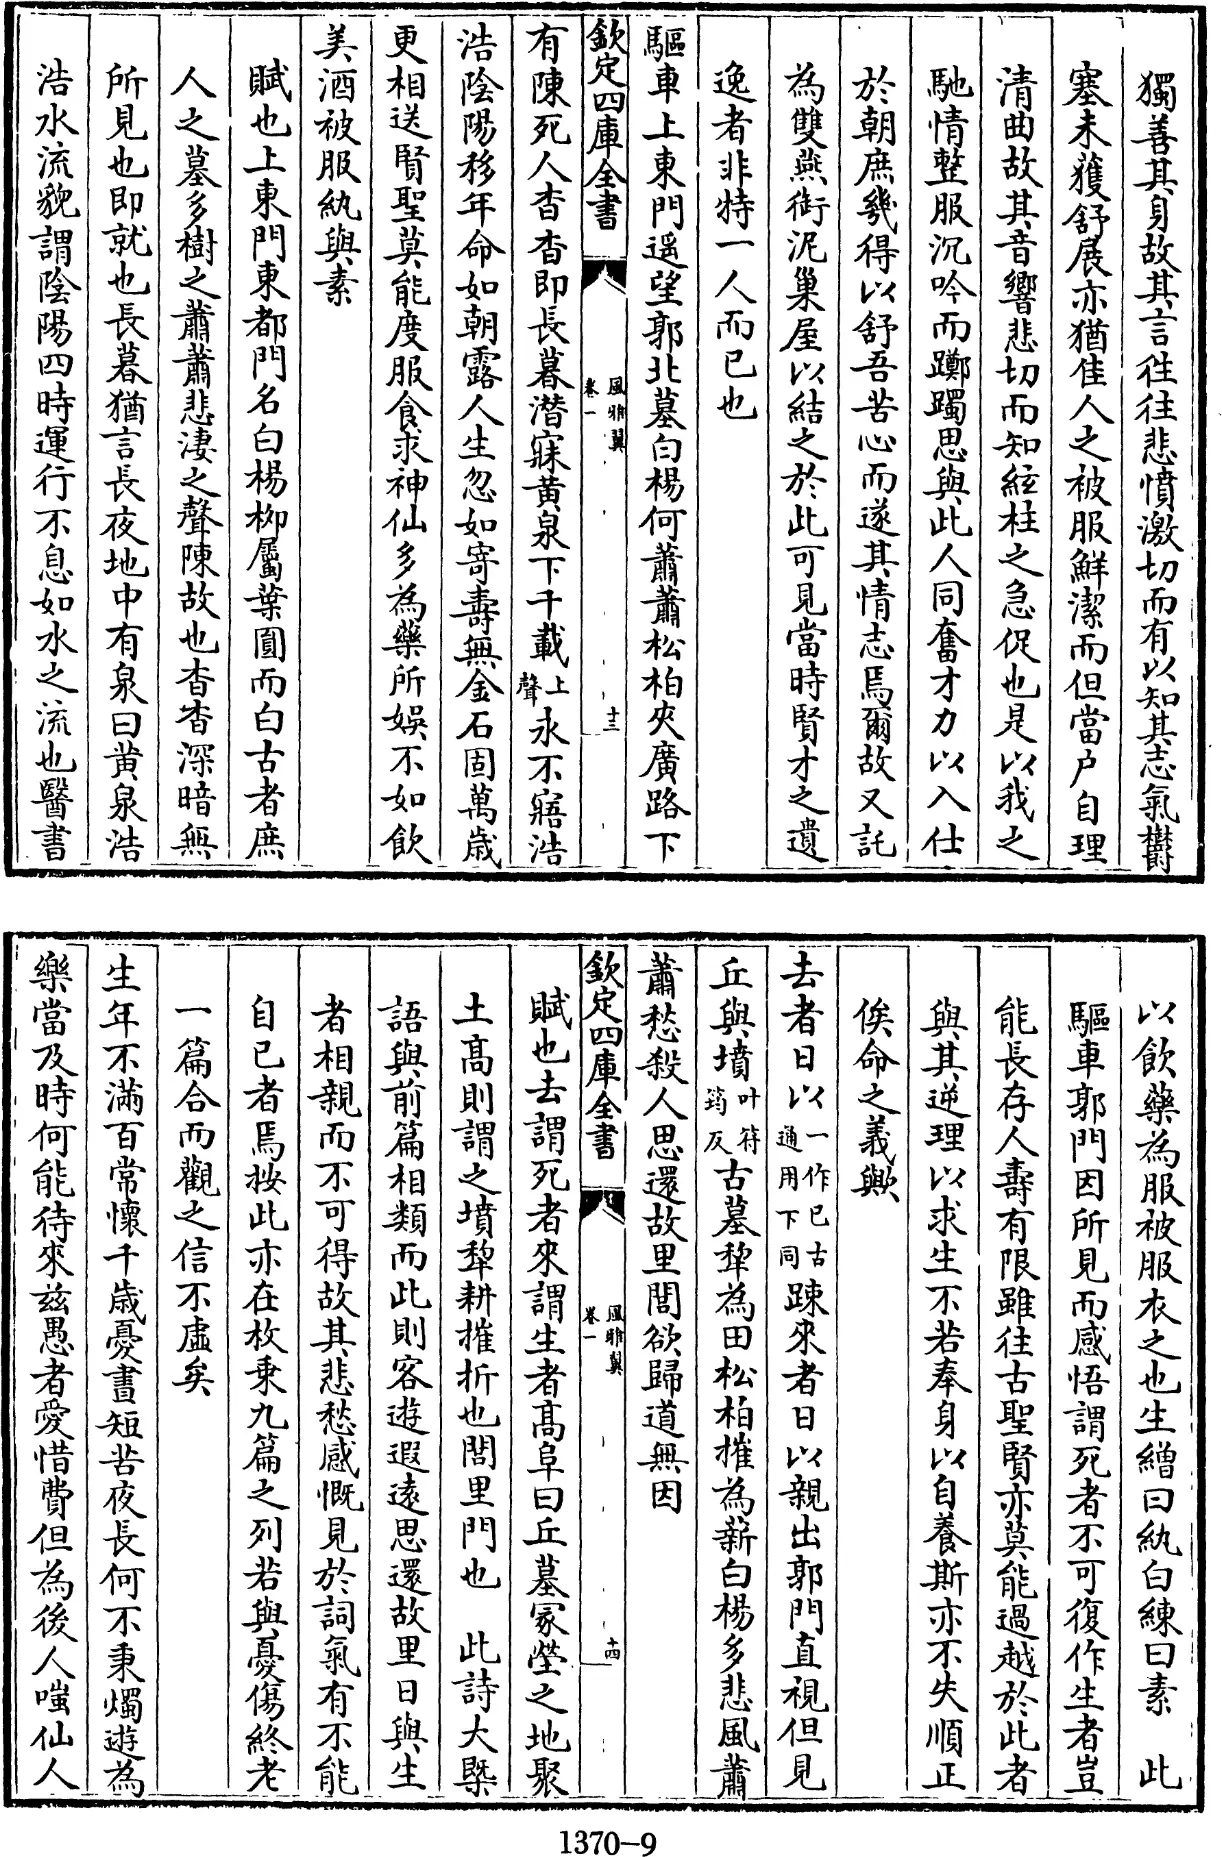 獨善其身故其言往往悲憤激切而有以知其志氣欝
塞未獲舒展亦猶佳人之被服鮮潔而但當户自理
清曲故其音響悲切而知絃柱之急促也是以我之
馳情整服沉吟而躑躅思與此人同奮才力以入仕
於朝庶幾得以舒吾苦心而遂其情志焉爾故又託
為雙燕銜泥巢屋以結之於此可見當時賢才之遺
逸者非特一人而已也
驅車上東門遥望郭北墓白楊何蕭蕭松柏夾廣路下
欽定四庫全書
風雅翼
卷一
十三
有陳死人杳杳即長暮潜寐黄泉下千載上聲永不寤浩
浩陰陽移年命如朝露人生忽如寄壽無金石固萬歳
更相送賢聖莫能度服食求神仙多為藥所娛不如飲
美酒被服紈與素
賦也上東門東都門名白楊栁屬葉圓而白古者庶
人之墓多樹之蕭蕭悲淒之聲陳故也杳杳深暗無
所見也即就也長暮猶言長夜地中有泉曰黄泉浩
浩水流貌謂陰陽四時運行不息如水之流也醫書
以飲藥為服被服衣之也生繒曰紈白練曰素　此
驅車郭門因所見而感悟謂死者不可復作生者豈
能長存人壽有限雖往古聖賢亦莫能過越於此者
與其逆理以求生不若奉身以自養斯亦不失順正
俟命之義歟
去者日以一作已古通用下同踈來者日以親出郭門直視但見
丘與墳叶符筠反古墓犂為田松柏摧為薪白楊多悲風蕭
蕭愁殺人思還故里閭欲歸道無因
欽定四庫全書
風雅翼
卷一
十四
賦也去謂死者來謂生者髙阜曰丘墓冢塋之地聚
土髙則謂之墳犂耕摧折也閭里門也　此詩大槩
語與前篇相類而此則客遊遐遠思還故里日與生
者相親而不可得故其悲愁感慨見於詞氣有不能
自已者焉按此亦在枚乗九篇之列若與憂傷終老
一篇合而觀之信不虛矣
生年不滿百常懷千歳憂晝短苦夜長何不秉燭遊為
樂當及時何能待來兹愚者愛惜費但為後人嗤仙人
1370-9